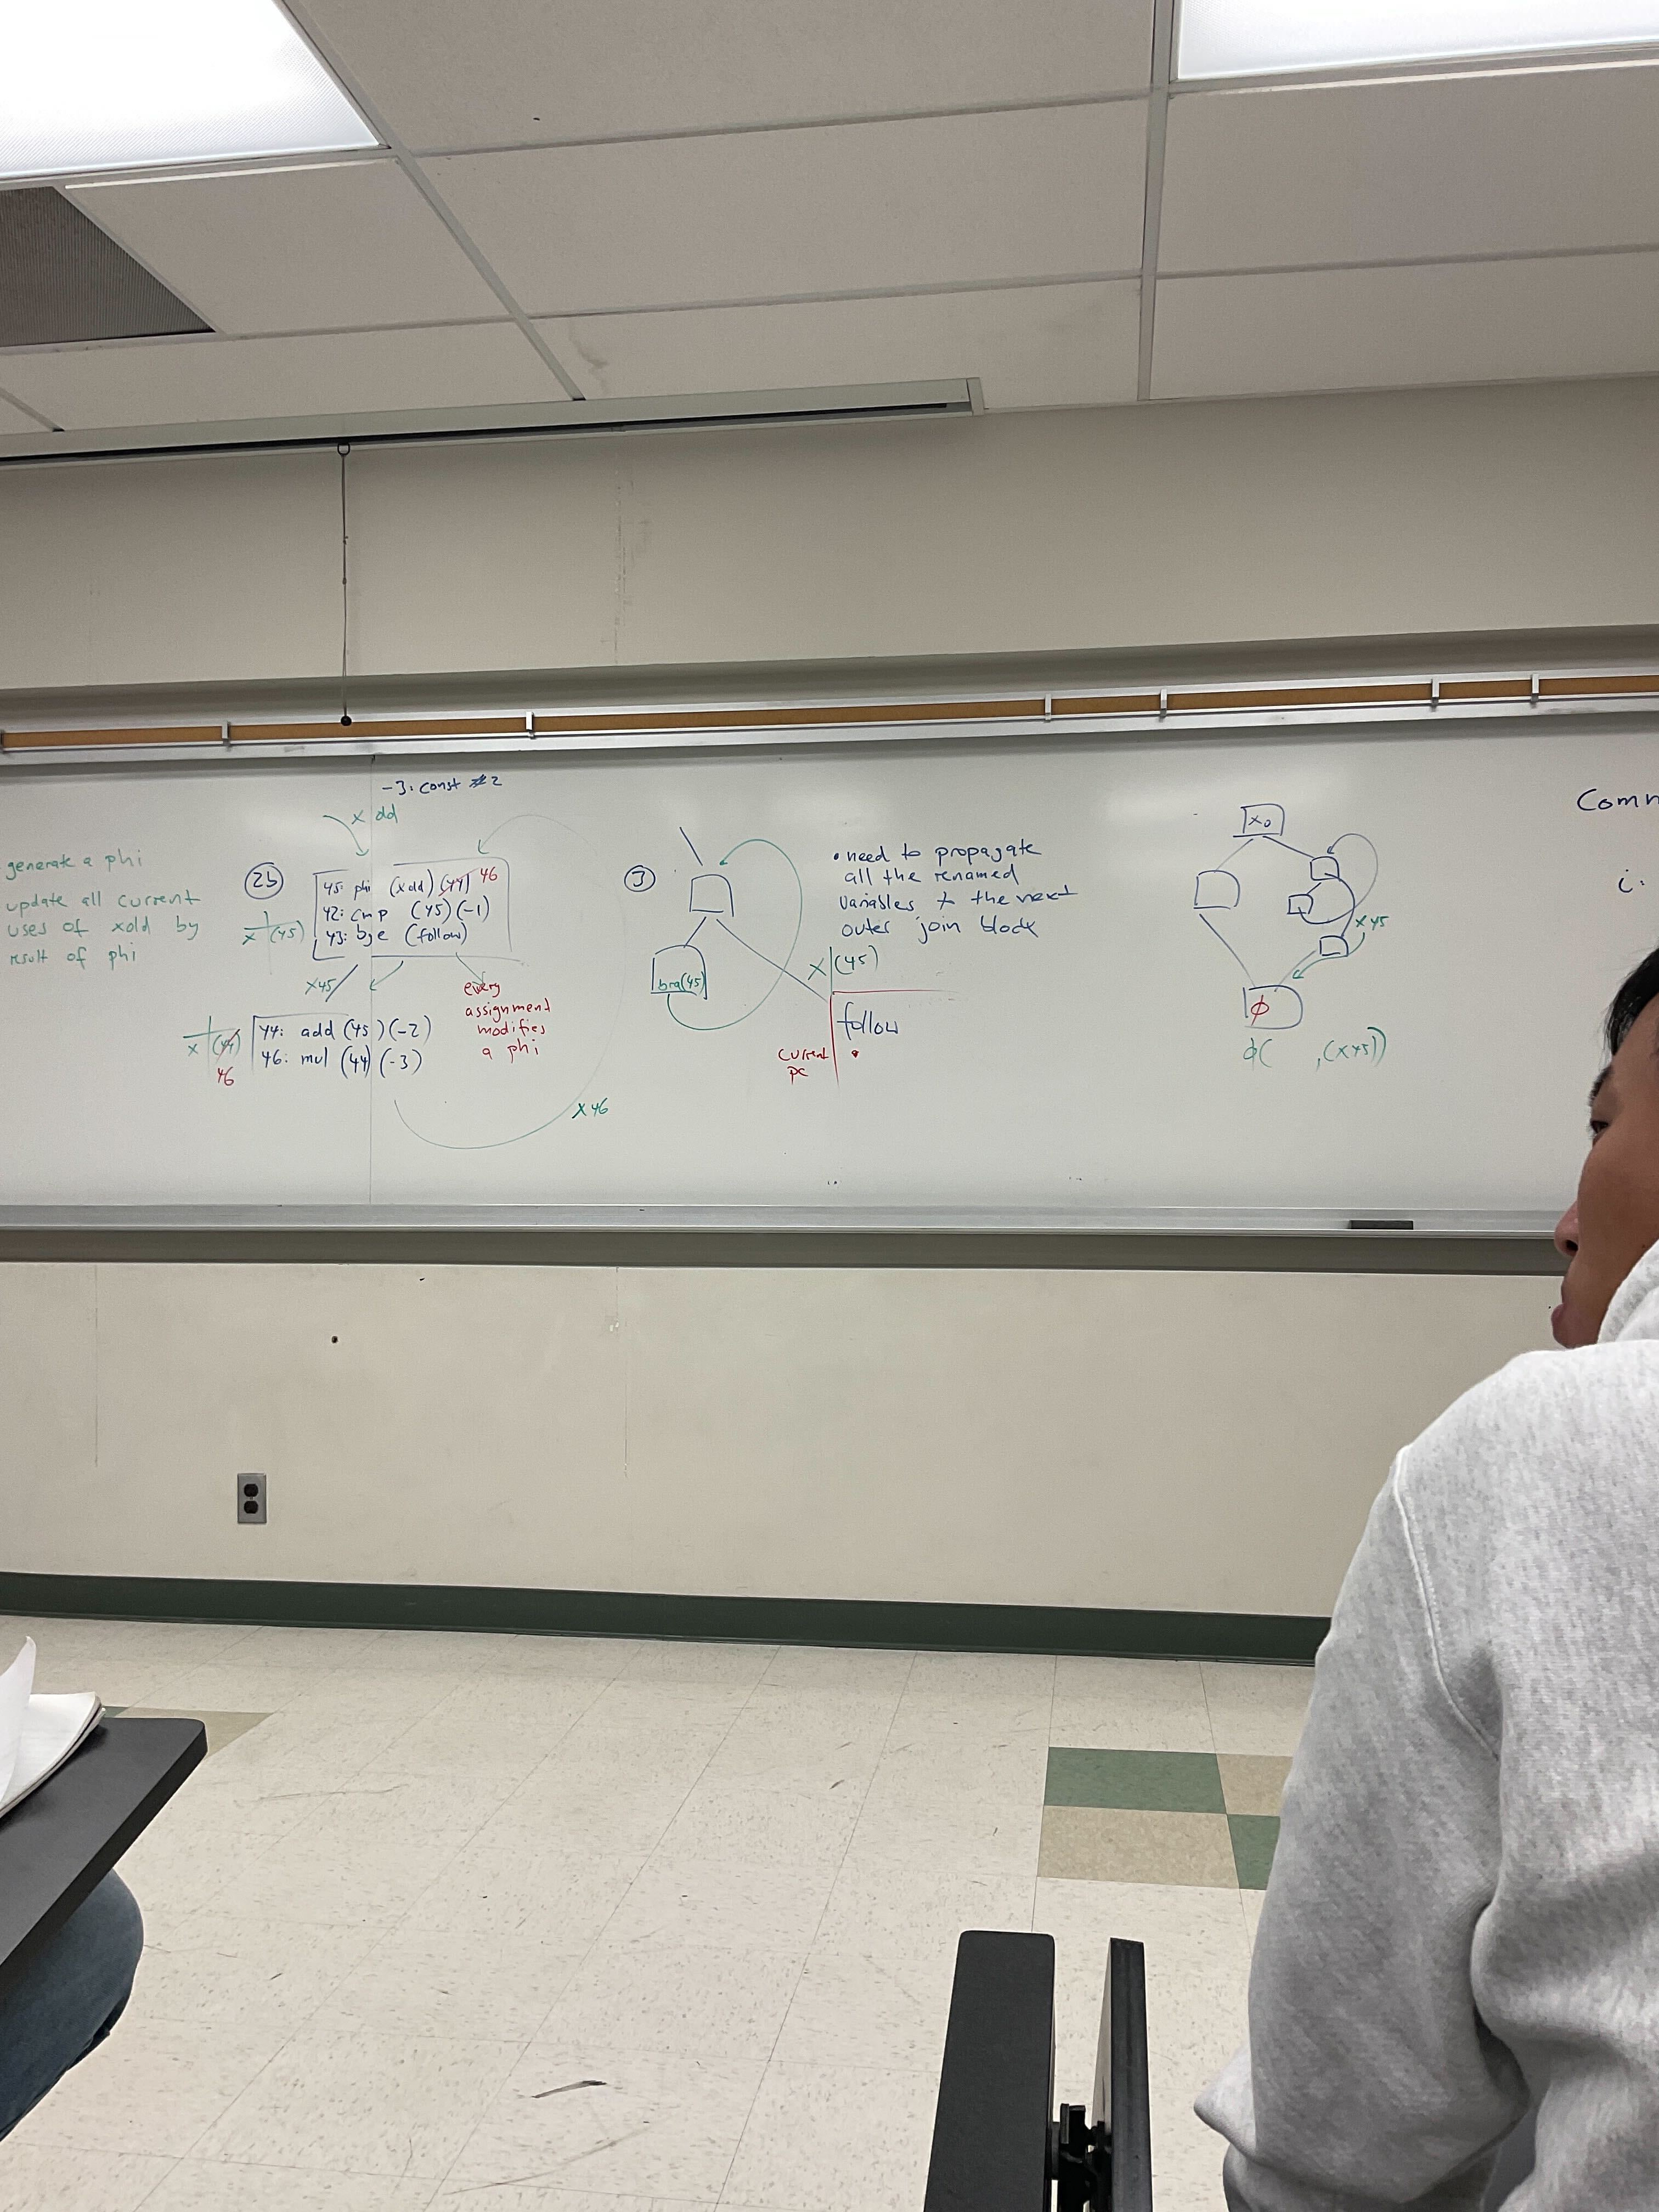 generate a phi
update all current
uses of xold by
result of phi
-3: const #2
x old
2b
45: phi (xold) (44) 46
42: cmp (45) (-1)
43: bge (follow)
x (45)
x45
every
assignment
modifies
a phi
44: add (45) (-2)
46: mul (44) (-3)
x (44)
46
x46
3
bra(45)
• need to propagate
all the renamed
variables to the next
outer join block
x (45)
follow
current
pc
x0
x45
ϕ
ϕ( ,(x45))
Comm
i: